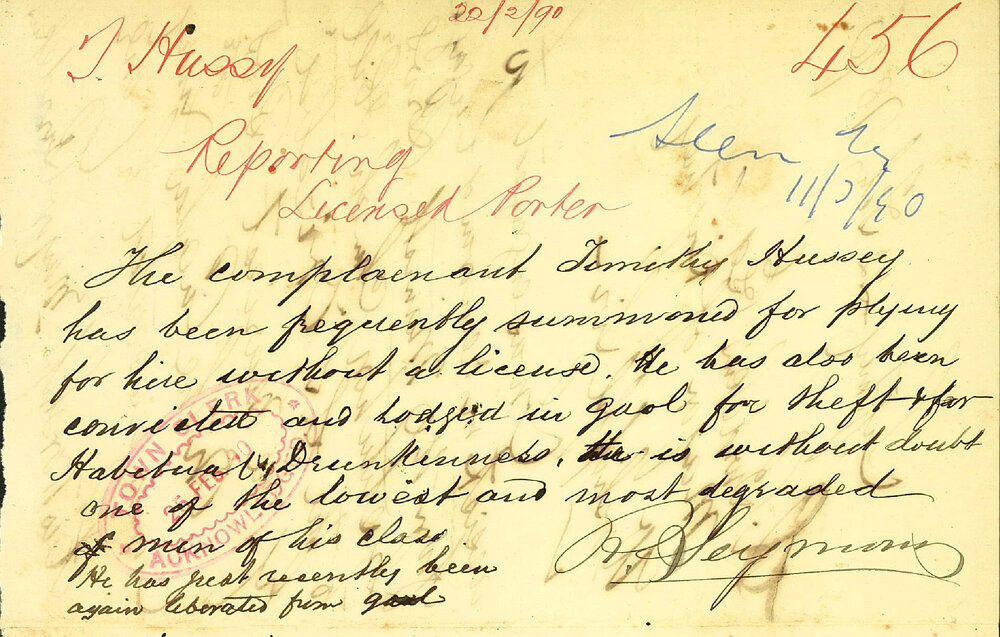 22/2/90
T Hussy
9
456
Reporting
Licensed Porter
Seen
11/3/90
The complaenant Timithy Hussey
has been frequently summoned for plying
for hire without a license. He has also been
convicted and lodged in gaol for theft & for
Habitual Drunkenness, is without doubt
one of the lowest and most degraded
of men of his class
He has just recently been
again liberated from gaol
Seymour
TOWN CLERK
FEB 90
ACKNOWLEDGED